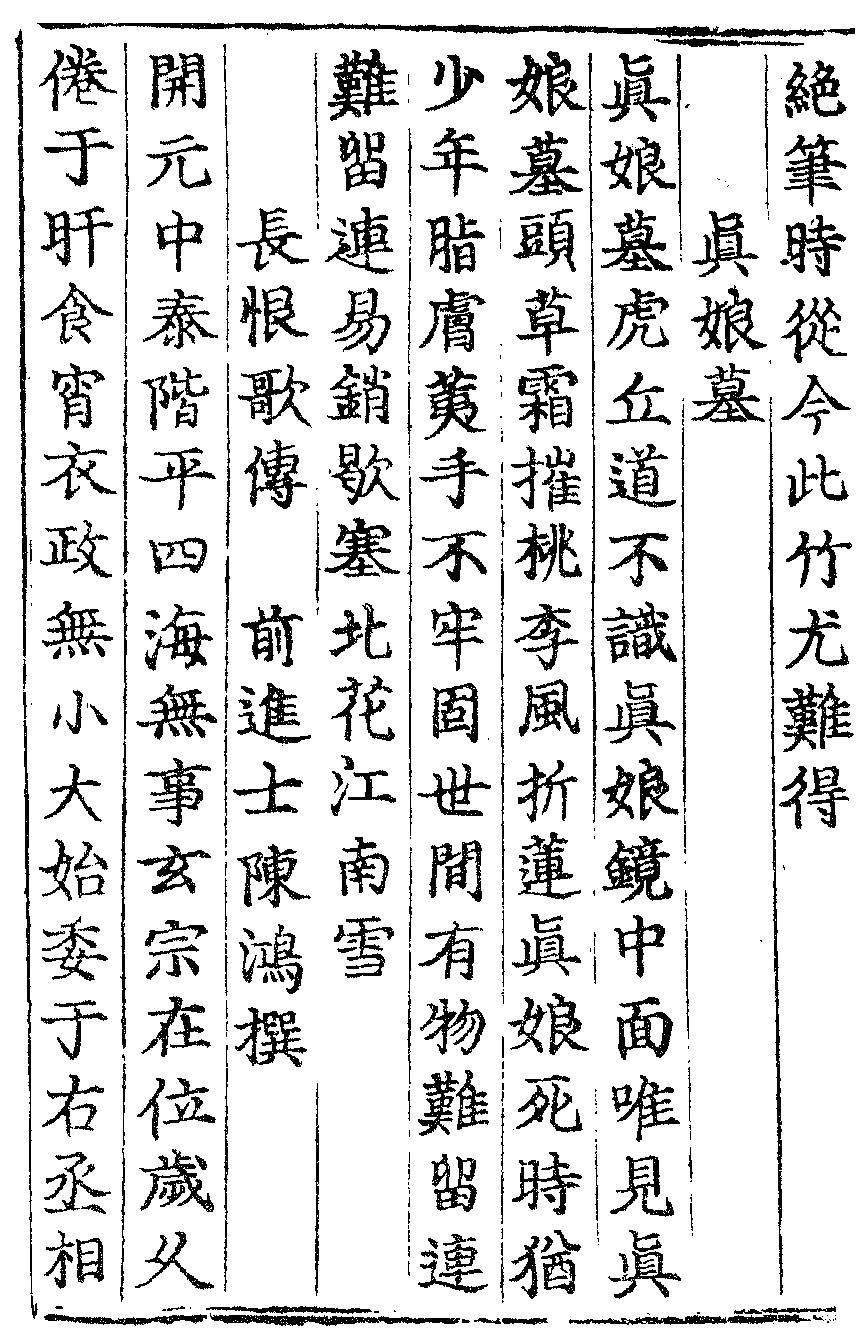 絶筆時從今此竹尤難得
眞娘墓
眞娘墓虎丘道不識眞娘鏡中面唯見眞
娘墓頭草霜摧桃李風折蓮眞娘死時猶
少年脂膚荑手不牢固世間有物難留連
難留連易銷歇塞北花江南雪
長恨歌傳　前進士陳鴻撰
開元中泰階平四海無事玄宗在位歲久
倦于肝食宵衣政無小大始委于右丞相